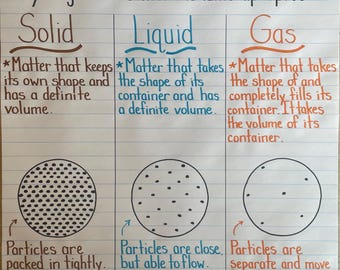 Solid
Liquid
Gas
*Matter that keeps
its own shape and
has a definite
volume.
*Matter that takes
the shape of its
container and has
a definite volume.
*Matter that takes
the shape of and
completely fills its
container. It takes
the volume of its
container.
Particles are
packed in tightly.
Particles are close,
but able to flow.
Particles are
separate and move